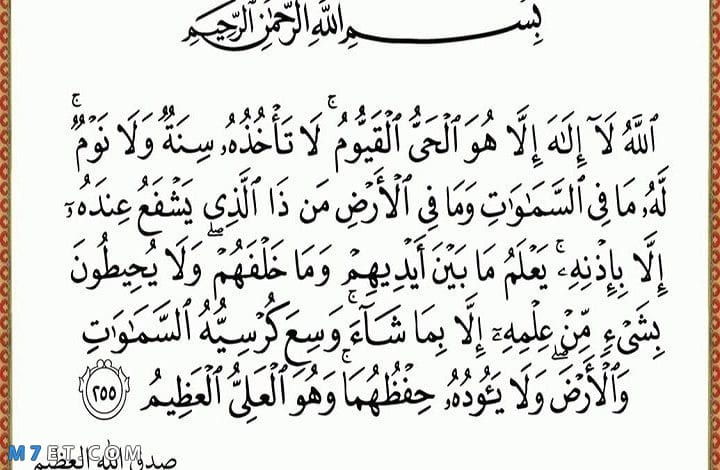 بِسْمِ ٱللَّهِ ٱلرَّحْمَٰنِ ٱلرَّحِيمِ
ٱللَّهُ لَآ إِلَٰهَ إِلَّا هُوَ ٱلْحَىُّ ٱلْقَيُّومُ ۚ لَا تَأْخُذُهُۥ سِنَةٌ وَلَا نَوْمٌ ۚ
لَّهُۥ مَا فِى ٱلسَّمَٰوَٰتِ وَمَا فِى ٱلْأَرْضِ مَن ذَا ٱلَّذِى يَشْفَعُ عِندَهُۥٓ
إِلَّا بِإِذْنِهِۦ ۚ يَعْلَمُ مَا بَيْنَ أَيْدِيهِمْ وَمَا خَلْفَهُمْ ۖ وَلَا يُحِيطُونَ
بِشَىْءٍ مِّنْ عِلْمِهِۦٓ إِلَّا بِمَا شَآءَ ۚ وَسِعَ كُرْسِيُّهُ ٱلسَّمَٰوَٰتِ
وَٱلْأَرْضَ ۖ وَلَا يَـُٔودُهُۥ حِفْظُهُمَا ۚ وَهُوَ ٱلْعَلِىُّ ٱلْعَظِيمُ ٢٥٥
M7ET.COM
صدق الله العظيم